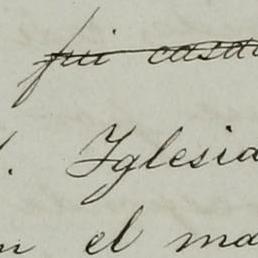 fui casa
Iglesia
el ma